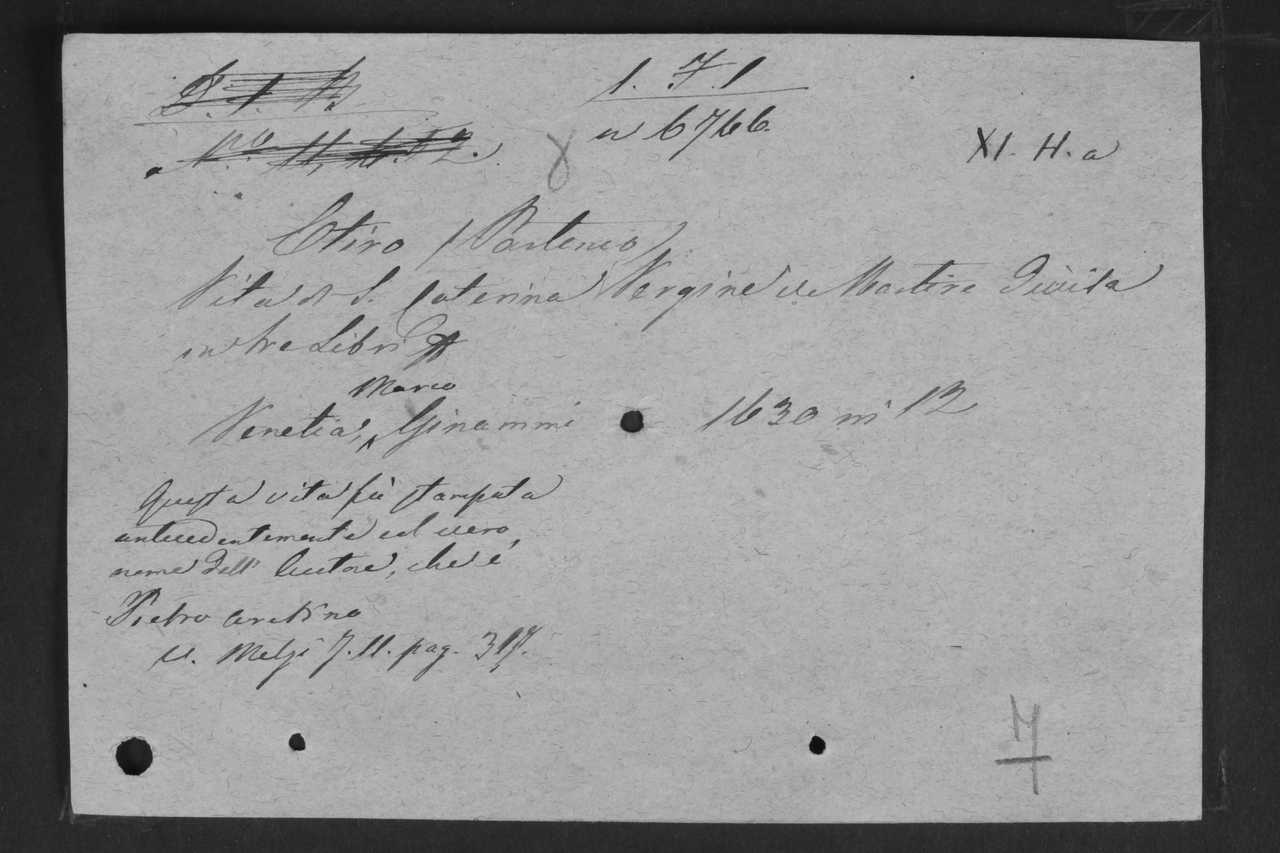 1. F. 1
n 6766.
XI. H. a
Etiro (Partenio)
Vita di S. Caterina Vergine e Martire Divisa
in tre Libri
Marco
Venetia, Ginammi 1630 in 12
Questa vita fu stampata
antecedentemente col vero
nome dell' Autore, che è
Pietro Aretino
V. Melzi T. II. pag. 317.